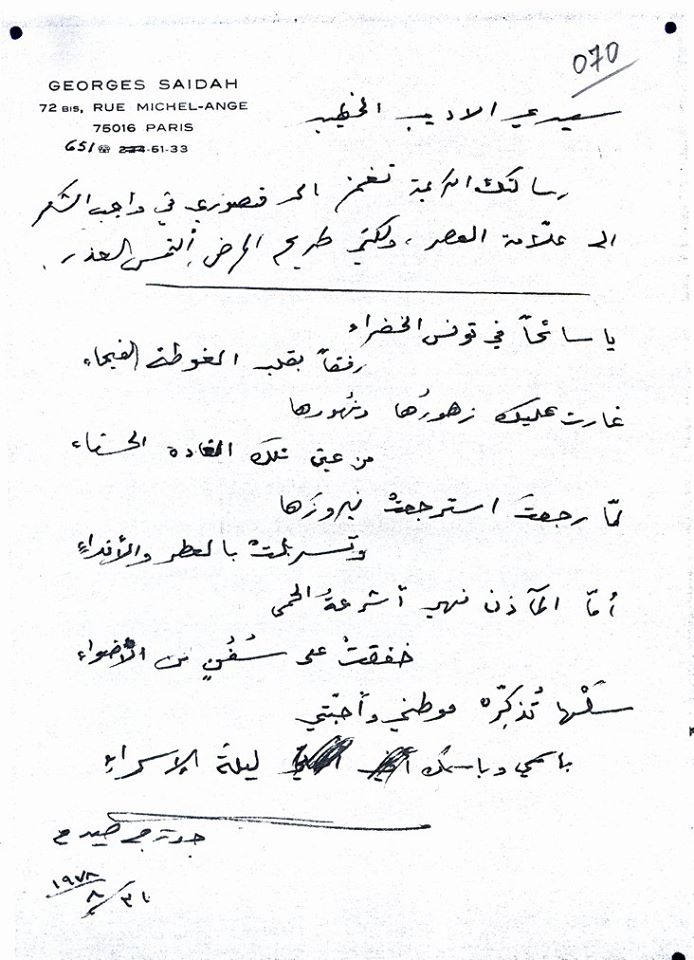 070
GEORGES SAIDAH
72 BIS, RUE MICHEL-ANGE
75016 PARIS
651 ☏ 224-51-33
سيدي الاديب الخطيب
رسالتك الكريمة تغمز الى قصوري في واجب الشكر
الى علّامة العصر، ولكني طريح المرض ألتمس العذر.
يا سائحاً في تونس الخضراء
رفقاً بقلب الغوطة الفيحاء
غارت عليك زهورُها ونهورها
من عين تلك الغادة الحسناء
لمّا رجعتَ استرجعتْ نيروزَها
وتسربلتْ بالعطر والأنداءِ
أمّا المآذن فهي أشرعةُ الحمى
خفقتْ على سُفُنٍ من الأضواء
سَلْها تُذكِّرْه موطني وأحبّتي
باسمي وباسمك ليلةَ الإسراءِ
جورج صيدح
٣١/٨/١٩٧٨